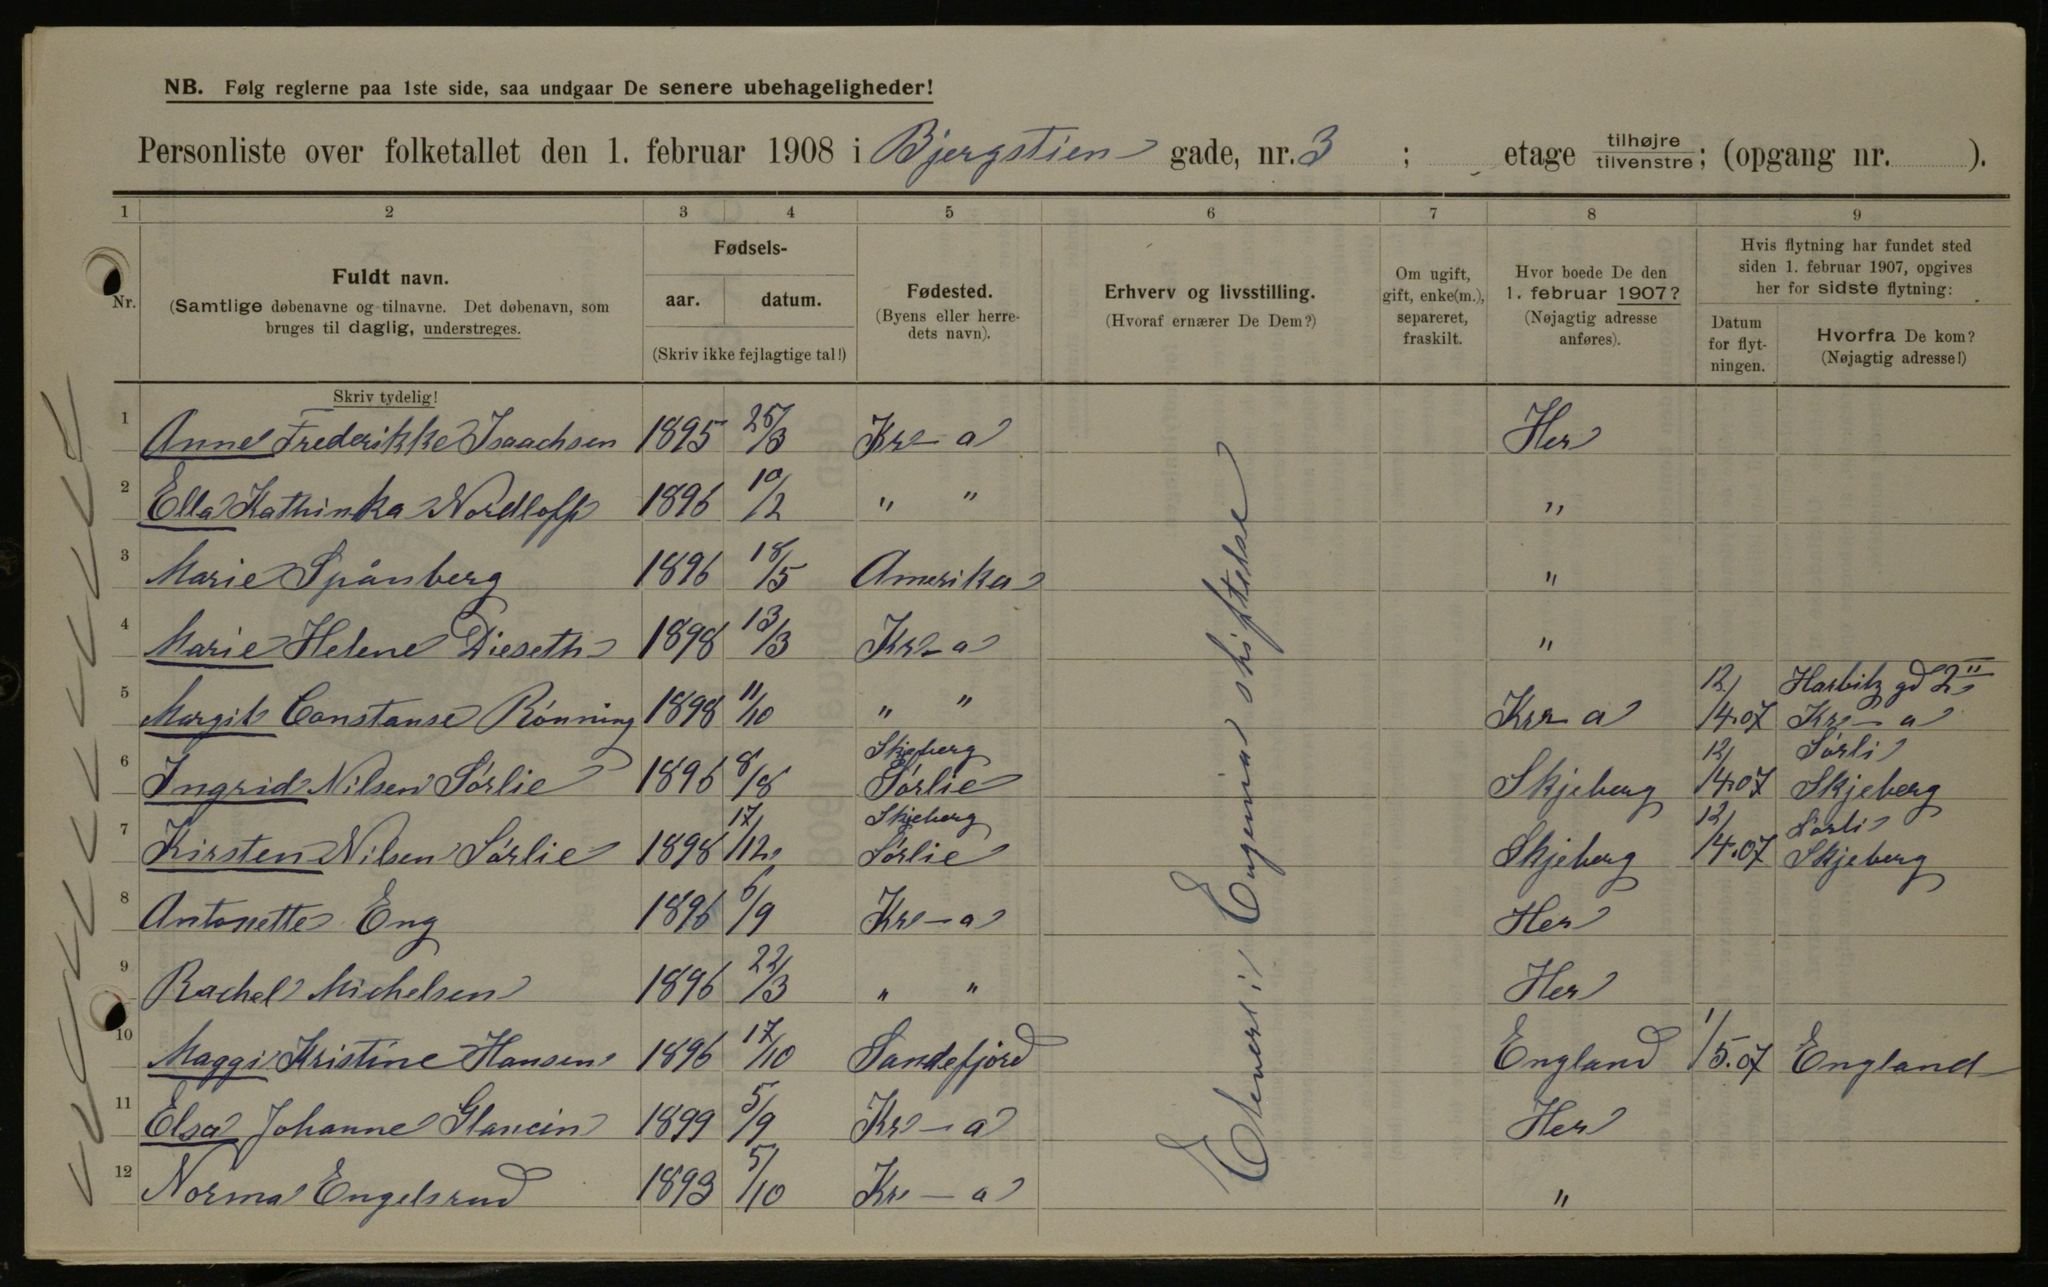 NB. Følg reglerne paa 1ste side, saa undgaar De senere ubehageligheder!
Personliste over folketallet den 1. februar 1908 i Bjergstien gade, nr. 3 ; etage tilhøjre tilvenstre; (opgang nr. ).
1 2 3 4 5 6 7 8 9
Nr.
Fuldt navn.
(Samtlige døbenavne og tilnavne. Det døbenavn, som
bruges til daglig, understreges.
Skriv tydelig!
Fødsels-
aar. datum.
(Skriv ikke fejlagtige tal!)
Fødested.
(Byens eller herre-
dets navn).
Erhverv og livsstilling.
(Hvoraf ernærer De Dem?)
Om ugift,
gift, enke(m.),
separeret,
fraskilt.
Hvor boede De den
1. februar 1907?
(Nøjagtig adresse
anføres).
Hvis flytning har fundet sted
siden 1. februar 1907, opgives
her for sidste flytning:
Datum
for flyt-
ningen.
Hvorfra De kom?
(Nøjagtig adresse!)
1 Anne Frederikke Isaachsen 1895 25/3 Kr-a Her
2 Ella Kathinka Nordloff 1896 10/2 " " "
3 Marie Spånberg 1896 18/5 Amerika "
4 Marie Helene Dieseth 1898 13/3 Kr-a "
5 Margit Constanse Rönning 1898 11/10 " " Kr-a 12/14.07 Harbitz gd 2 II Kr-a
6 Ingrid Nilsen Sörlie 1896 8/8 Skjeberg Sörlie Skjeberg 12/14.07 Sörli Skjeberg
7 Kirsten Nilsen Sörlie 1898 17/12 Skjeberg Sörlie Skjeberg 12/14.07 Sörli Skjeberg
8 Antonette Eng 1896 6/9 Kr-a Her
9 Rachel Michelsen 1896 22/3 " " Her
10 Maggi Kristine Hansen 1896 17/10 Sandefjord England 1/5.07 England
11 Elsa Johanne 1899 5/9 Kr-a Her
12 Norma Engelsrud 1893 5/10 Kr-a "
Elever i Eugenias stiftelse